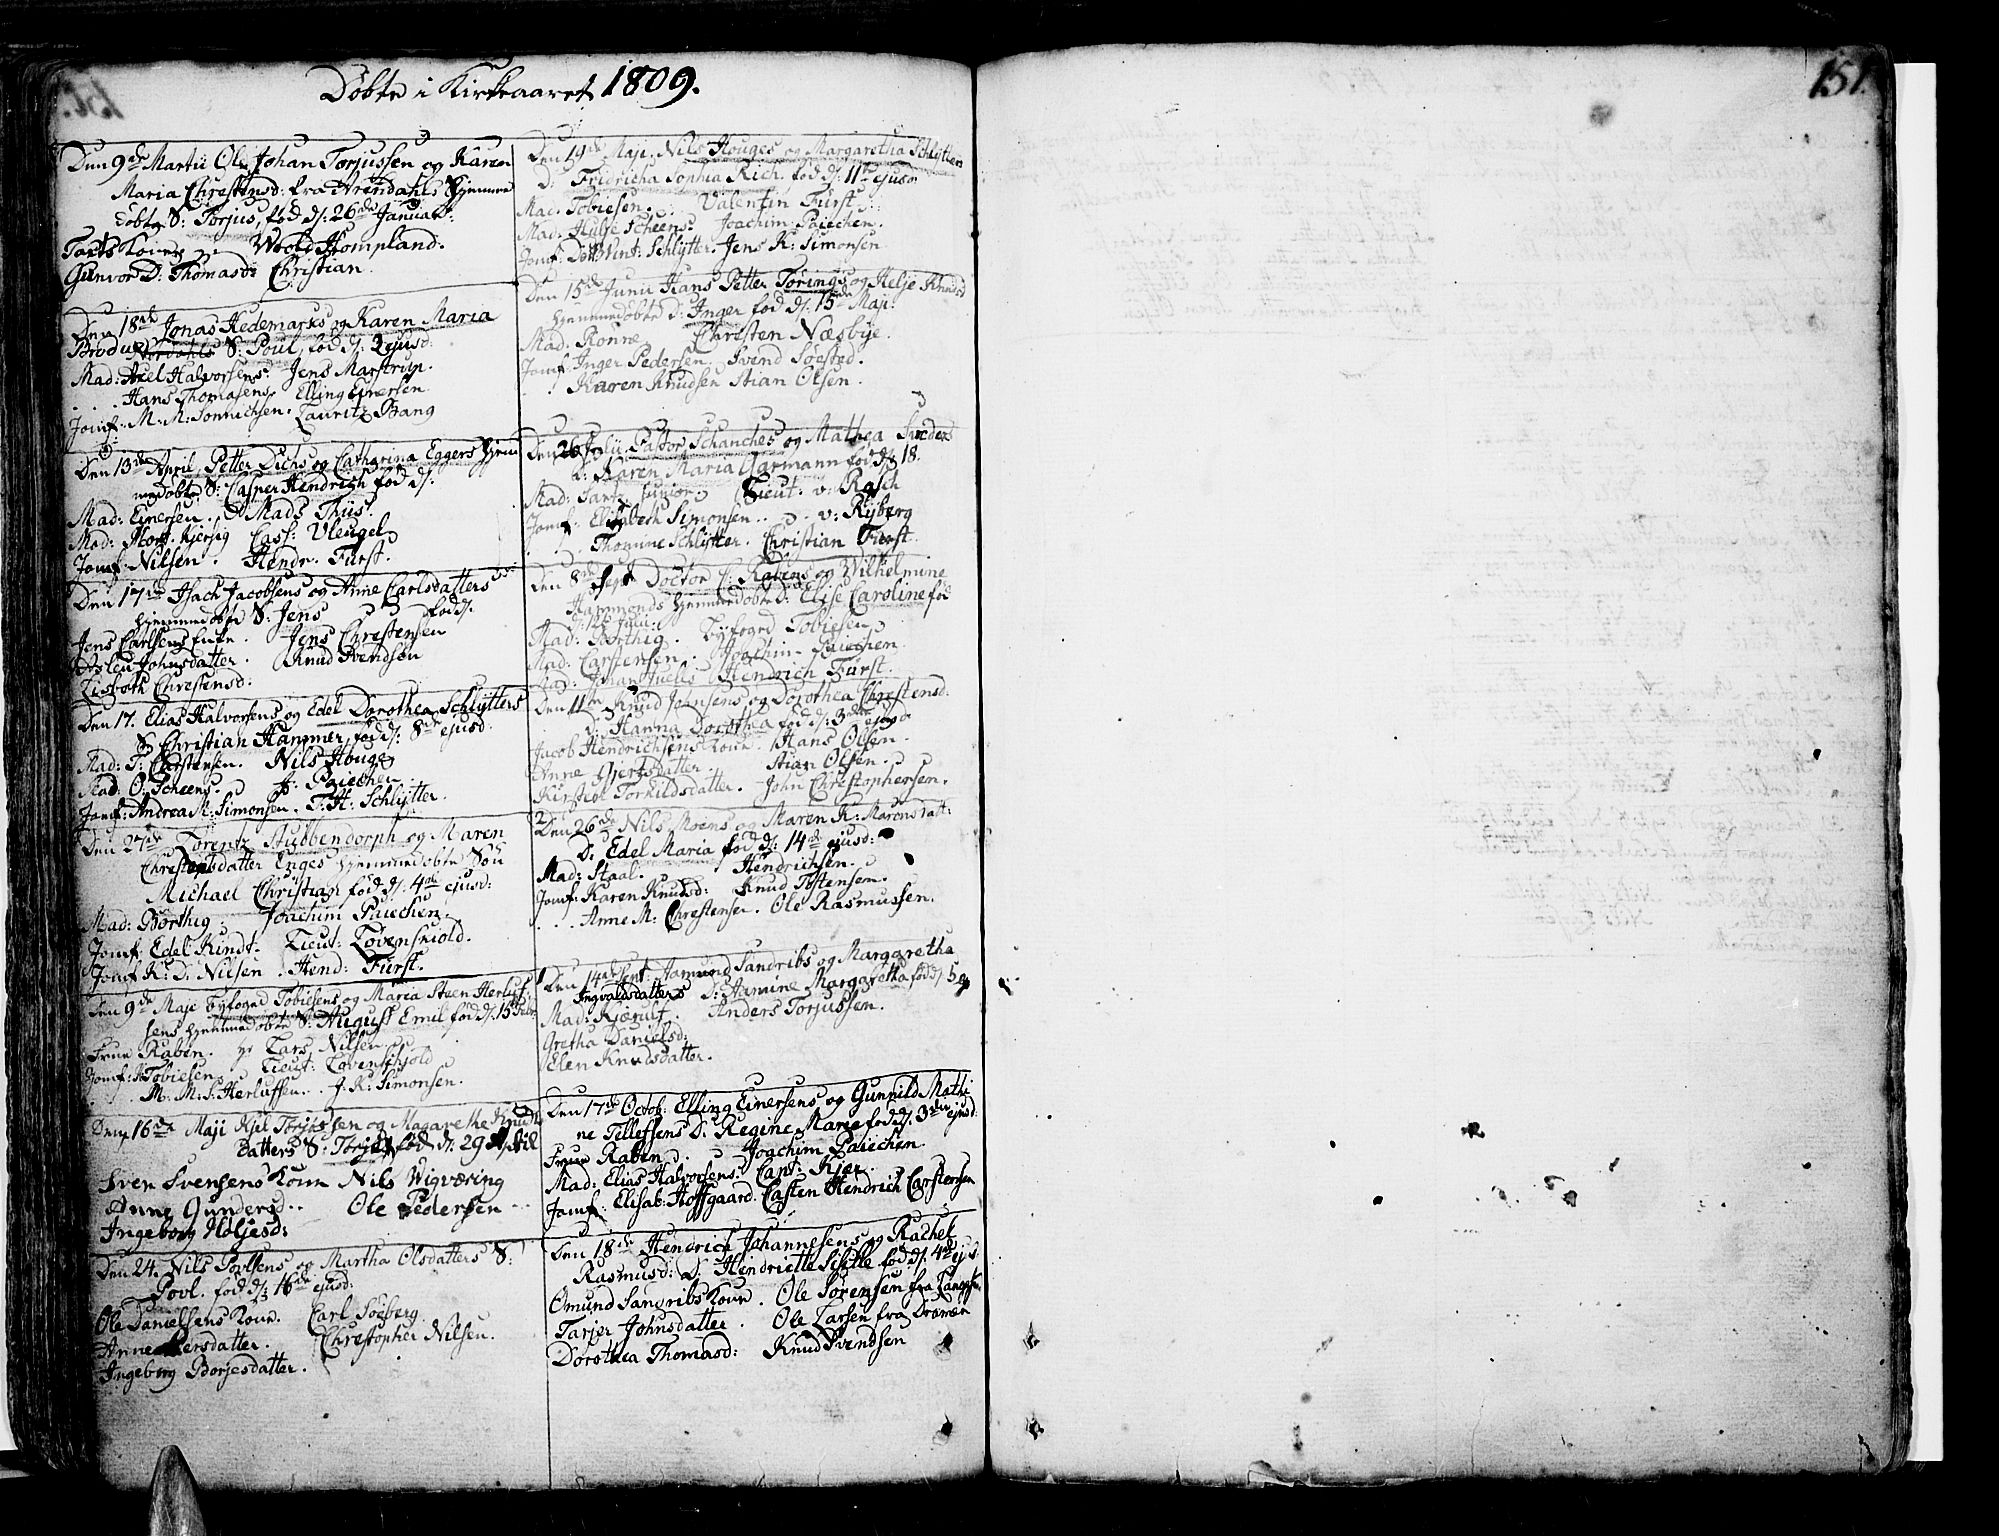 Døbte i Kirkeaaret 1809.
151.
Den 9de Martii Ole Johan Torjussen og Karen
Maria Chrestensd: fra Arendahls hjemme
døbte S: Torjus, fød d: 26de Januar:
Koner Wold Hompland.
Gunvor D: Thomasd: Christian
Den 18de Jonas Hedemarks og Karen Maria
S: Poul, fød d: 2 ejusd:
Mad: Axel Halvorsens. Jens Marstrup.
Hans Thomasens Elling Einersen
Jomf: M. M: Sonnichsen. Lauritz Bang
Den 13de April, Petter Dichs og Cathrina Eggers hjem
medøbte S: Casper Hendrich fød d:
Mad: Einersen. Mads Thiis.
Mad: Mort. Kjersig Cass: Vleugel
Jomf: Nilsen. Hendr. Fürst.
Den 17de Isach Jacobsens og Anne Carlsdatters
hjemmedøbte S: Jens fød d:
Jens Carlsens Enke. Jens Chrestensen
Aslou Johnsdatter. Knud Svendsen
Lisbeth Chrestensd:
Den 17. Elias Halvorsens og Edel Dorothea Schlÿtters
S: Christian Hammer, fød d: 8de ejusd.
Mad: T: Carstensen. Nils Houge
Mad: O: Scheens. J: Paiechen
Jomf: Andrea M: Simonsen. T: H: Schlÿtter.
Den 27de Lorentz Studbendorph og Maren
Chrestensdatter Enges hjemmedøbte Søn
Michael Christian fød d: 4de ejusd:
Mad: Borthig. Joachim Paiechen.
Jomf: Edel Kindt. Lieut: Løvenskiold.
Jomf K: D: Nilsen. Hend: Fürst.
Den 9de Maji Byfoged Tobiesens og Maria Steen Herluf
sens hjemmedøbte S: August Emil fød d: 15 Febr
Frue Raben. Hr Lars Nilsen
Jomf: Tobiesen Lieut: Løvenskjold
M. M: S: Herluffsen. J. K: Simonsen.
Den 16de Maji Kjil Torjussen og Magarethe Knuds
datters S: Torjus fød d. 29 April
Sven Svensens Kone Nils Wigværing
Anne Gundersd.. Ole Pedersen
Ingeborg Holjesd:
Den 24. Nils Povlsens og Martha Olsdatters S:
Povl. fød d: 16de ejusd:
Ole Danielsens Kone. Carl Søeberg
Anne datter. Christopher Nilsen.
Ingeborg Borjesdatter.
Den 19de Maji. Nils Houges og Margaretha Schlÿtters
D: Fridricha Sophia Rich. fød d: 11te ejusd
Mad. Tobiesen. Valentin Fürst.
Mad: Hilje Scheens. Joachim Paiechen.
Jomf: Schlÿtter. Jens K: Simonsen
Den 15de Junii Hans Petter Tørings og Helje Knudsd
hjemmedøbte D: Inger fød d: 15de Maji:
Mad: Rønne Chresten Næsbye.
Jomf: Inger Pedersen. Svend Søested.
Karen Knudsen Stian Olsen.
Den 26 Julii Pastor Schanches og Mathea Sveders
D: Karen Maria Garmann fød d: 18.
Mad: junior. Lieut. v: Rasch
Jomf: Elisabeth Simonsen.. v: Rÿberg
Thomine Schlÿtter. Christian Fürst.
Den 8de Sept Doctor C: Rabens og Wilhelmine
Hammonds hjemmedøbte D: Elise Caroline fød
d: 12te Julii:
Mad: Borthig. Byfogd Tobiesen
Mad: Carstensen. Joachim Paiechen
Mad: Johan Juells Hendrich Fürst.
Den 11te Knud Johnsens og Dorothea Chrestensd:
D: Hanna Dorothea fød d: 3de ejusd
Jacob Hendrichsens Kone. Hans Olsen.
Anne Gjertsdatter. Stian Olsen.
Kirstie Torkildsdatter. John Christophersen.
Den 26de Nils Moens og Maren K: Marensdatt:
D. Edel Maria fød d: 14de ejusd:
Mad: Staal. Hendrichsen.
Jomf: Karen Knudsd: Knud Tostensen.
Anne M: Chrestensen. Ole Rasmussen.
Den 14de Sept. Aamund Sandribs og Margaretha
Ingvaldsdatters D: Aamine Margaretha fød d: 5 ej
Mad: Kjærulf. Anders Torjussen.
Gretha Danielsd:
Elen Knudsdatter.
Den 17de Octob: Elling Einersens og Gunnild Mathi
ne Tellefsens D. Regine Marie fød d: 3den ejusd:
Frue Raben. Joachim Paiechen
Mad: Elias Halvorsens. Capt: Kjær.
Jomf: Elisab: Hoffgaard. Casten Hendrich Carstensen
Den 18de Hendrich Johannesens og Rachel
Rasmusd: D. Hendriette Siselle fød d: 4de ejus
Omund Sandribs Kone. Ole Sørensen fra
Tarjer Johnsdatter. Ole Larsen fra Dramen
Dorothea Thomasd: Knud Svendsen